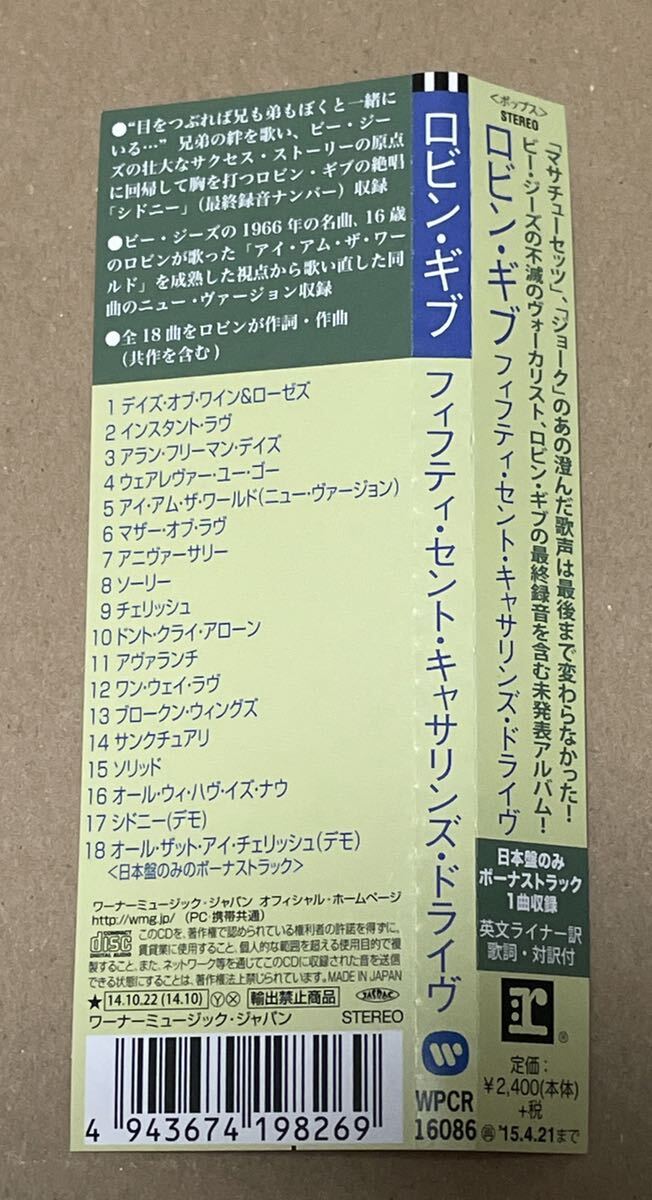 ●“目をつぶれば兄も弟もぼくと一緒に
いる…” 兄弟の絆を歌い、ビー・ジー
ズの壮大なサクセス・ストーリーの原点
に回帰して胸を打つロビン・ギブの絶唱
「シドニー」(最終録音ナンバー) 収録
●ビー・ジーズの1966年の名曲、16歳
のロビンが歌った「アイ・アム・ザ・ワー
ルド」を成熟した視点から歌い直した同
曲のニュー・ヴァージョン収録
●全18曲をロビンが作詞・作曲
(共作を含む)
1 デイズ・オブ・ワイン&ローゼズ
2 インスタント・ラヴ
3 アラン・フリーマン・デイズ
4 ウェアレヴァー・ユー・ゴー
5 アイ・アム・ザ・ワールド(ニュー・ヴァージョン)
6 マザー・オブ・ラヴ
7 アニヴァーサリー
8 ソーリー
9 チェリッシュ
10 ドント・クライ・アローン
11 アヴァランチ
12 ワン・ウェイ・ラヴ
13 ブロークン・ウィングズ
14 サンクチュアリ
15 ソリッド
16 オール・ウィ・ハヴ・イズ・ナウ
17 シドニー(デモ)
18 オール・ザット・アイ・チェリッシュ(デモ)
<日本盤のみのボーナストラック>
ワーナーミュージック・ジャパン オフィシャル・ホームページ
http://wmg.jp/ (PC 携帯共通)
COMPACT
disc
DIGITAL AUDIO
このCDを、著作権法で認められている権利者の許諾を得ずに、
賃貸業に使用すること、個人的な範囲を超える使用目的で複
製すること、また、ネットワーク等を通じてこのCDに収録された音を送信
できる状態にすることは、著作権法上禁じられています。MADE IN JAPAN
★ 14.10.22 (14.10) Y X 輸出禁止商品 JASRAC
ワーナーミュージック・ジャパン STEREO
4 943674 198269
ロビン・ギブ フィフティ・セント・キャサリンズ・ドライヴ
WPCR
16086
<ポップス>
STEREO
「マサチューセッツ」、「ジョーク」のあの澄んだ歌声は最後まで変わらなかった!
ビー・ジーズの不滅のヴォーカリスト、ロビン・ギブの最終録音を含む未発表アルバム!
ロビン・ギブ フィフティ・セント・キャサリンズ・ドライヴ
日本盤のみ
ボーナストラック
1曲収録
英文ライナー訳
歌詞・対訳付
r ®
定価:
¥2,400(本体)
+税
'15.4.21まで